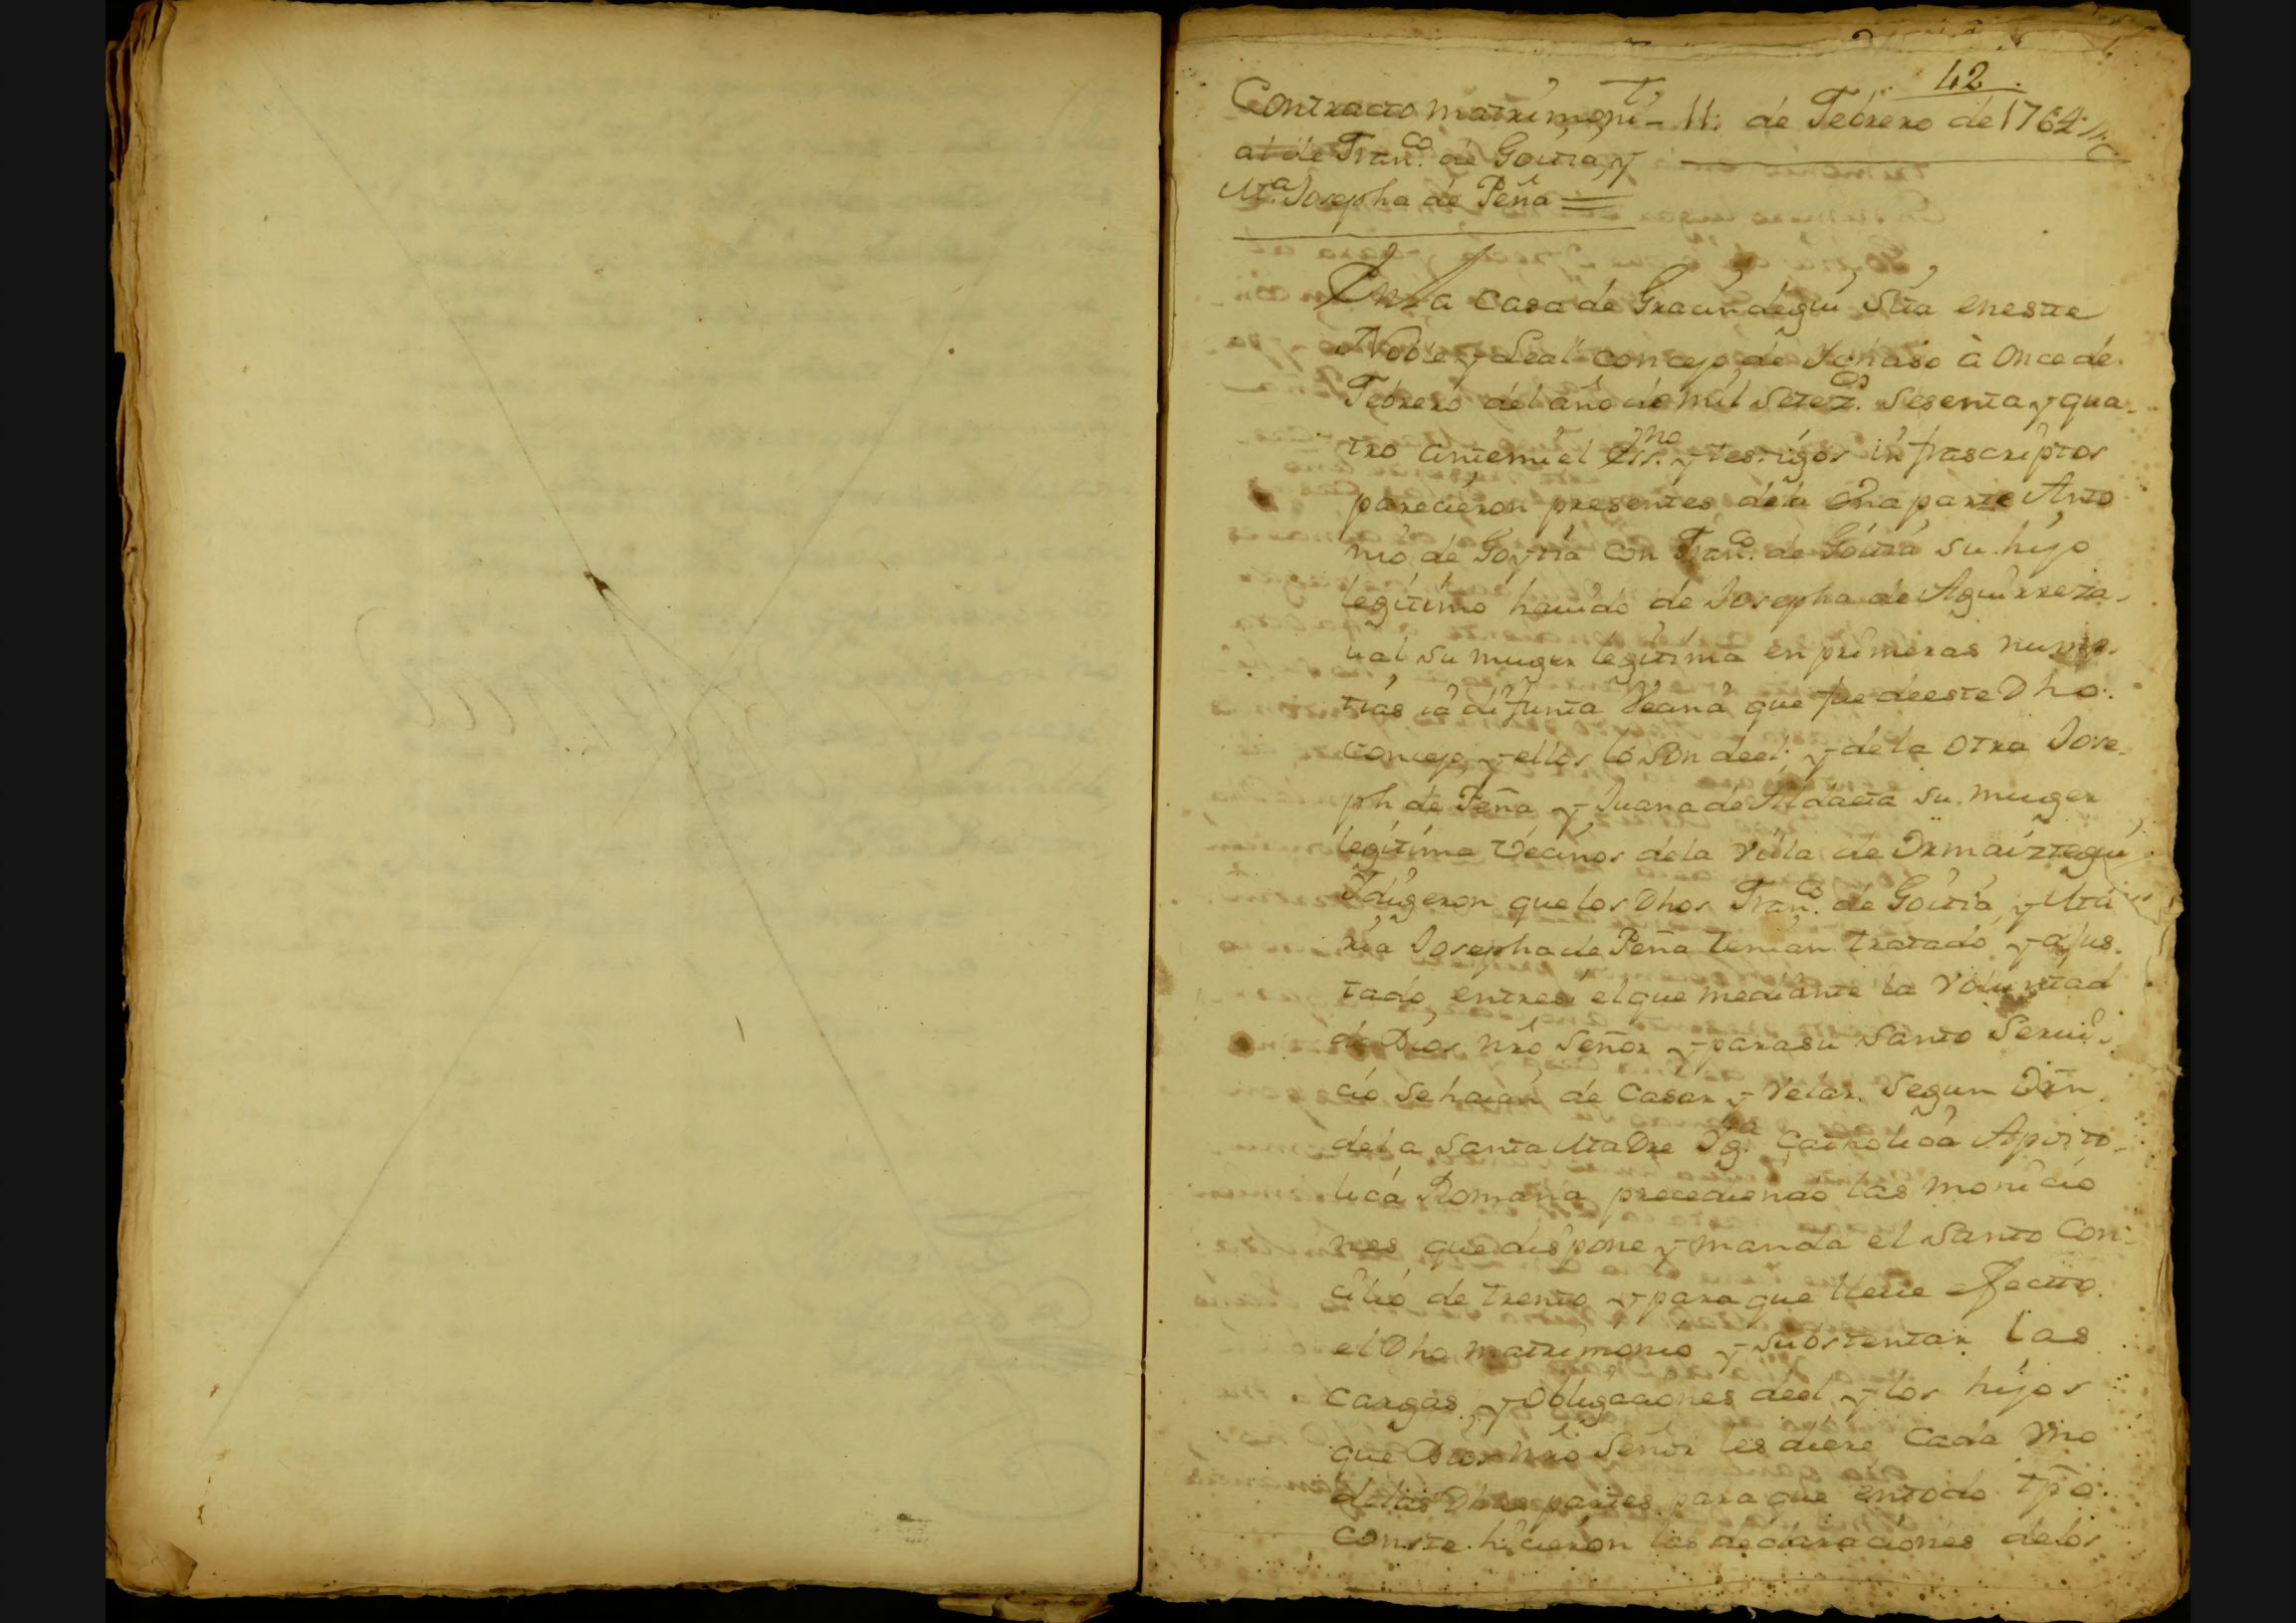 42
Contracto matrimoni- 11. de Febrero de 1764
al de Franco. de Goitia, y
Ma. Josepha de Peña =
En la Casa de Graundegui Sita en este
Noble y Leal concejo de Ichaso à once de
Febrero del año de mil setezos. sesenta y qua-
tro ante mi el essno. y testigos infrascriptos
parecieron presentes de la Vna parte Anto
nio de Goytia con Franco. de Goitia su hijo
legitimo hauido de Josepha de Aguirreza-
ual su muger legitima en primeras nump-
tias ia difunta Vecina que fue de este Dho.
concejo, y ellos lo son de el; y de la otra Jose-
ph de Peña y Juana de Aldaeta su muger
legitima Vecinos de la Villa de Ormaiztegui
Y digeron que los Dhos Franco. de Goitia, y Ma
ria Josepha de Peña tenian tratado, y ajus-
tado, entre si el que mediante la Voluntad
de Dios nro Señor y para su Santo Serui-
cio se haian de Casar y Velar segun Orn
de la Santa Madre Iga. Catholica Aposto-
lica Romana, precediendo las monicio
nes que dispone y manda el Santo Con-
cilio de trento y para que lleue efecto
el Dho matrimonio y substentar las
cargas, y obligaciones de el y los hijos
que Dios nro Señor les diere Cada Vno
de las Dhas partes para que en todo tpo.
conste hicieron las declaraciones de los